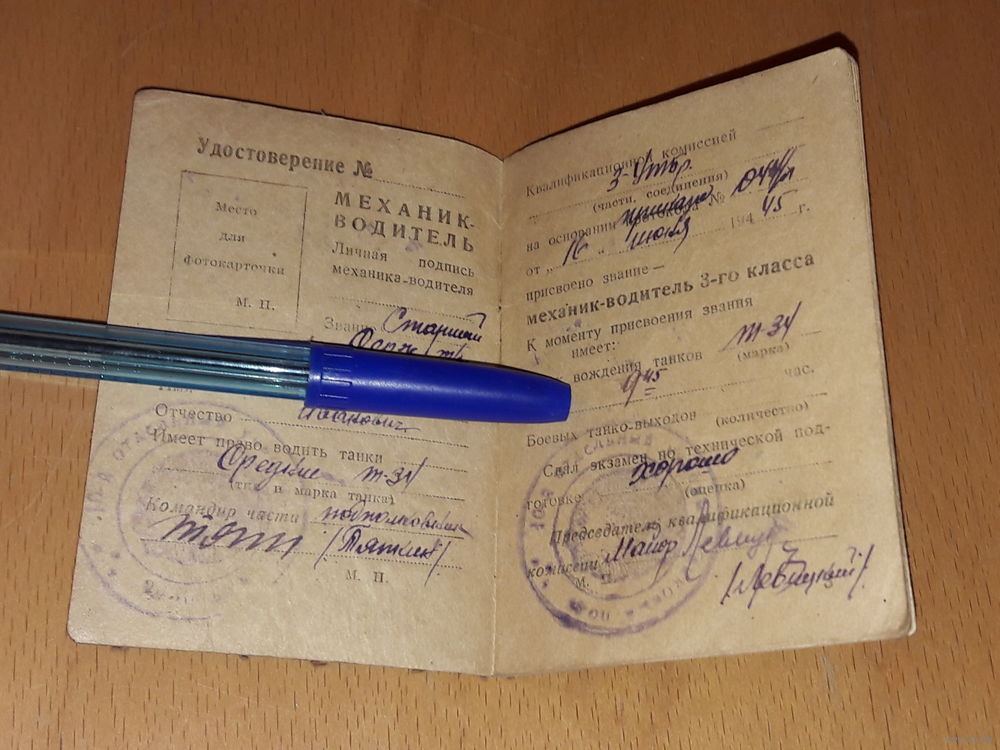 Удостоверение №
Место
для
фотокарточки
М. П.
МЕХАНИК-
ВОДИТЕЛЬ
Личная подпись
механика-водителя
Звание Старший
Отчество
Имеет право водить танки
Средние Т-34
(тип и марка танка)
Командир части подполковник
/Тяпкин/
М. П.
Квалификационной комиссией
(части, соединения)
на основании приказа №
от „ 16 “ июля 194 45 г.
присвоено звание —
механик-водитель 3-го класса
К моменту присвоения звания
имеет:
вождения танков Т-34
(марка)
час.
Боевых танко-выходов
(количество)
Сдал экзамен по технической под-
готовке хорошо
(оценка)
Председатель квалификационной
комиссии Майор Левицкий
М. П.
/Левицкий/